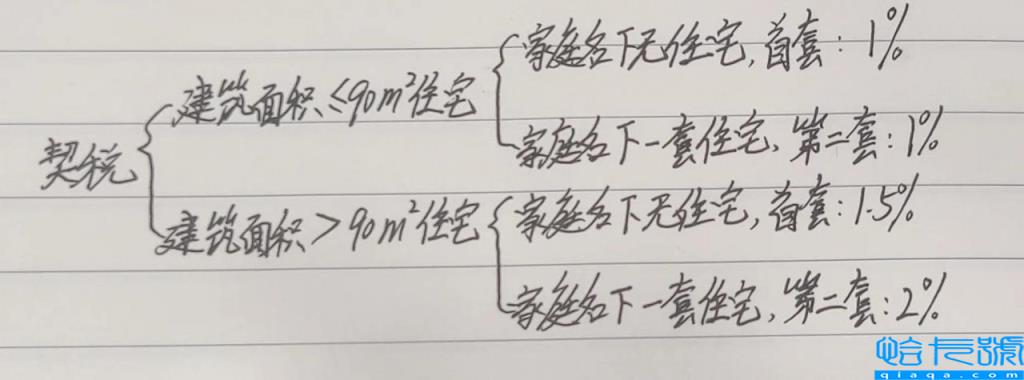 家庭名下无住宅,首套:1%
建筑面积≤90m²住宅
家庭名下一套住宅,第二套:1%
契税
家庭名下无住宅,首套:1.5%
建筑面积>90m²住宅
家庭名下一套住宅,第二套:2%
哈卡號
qiaqa.com